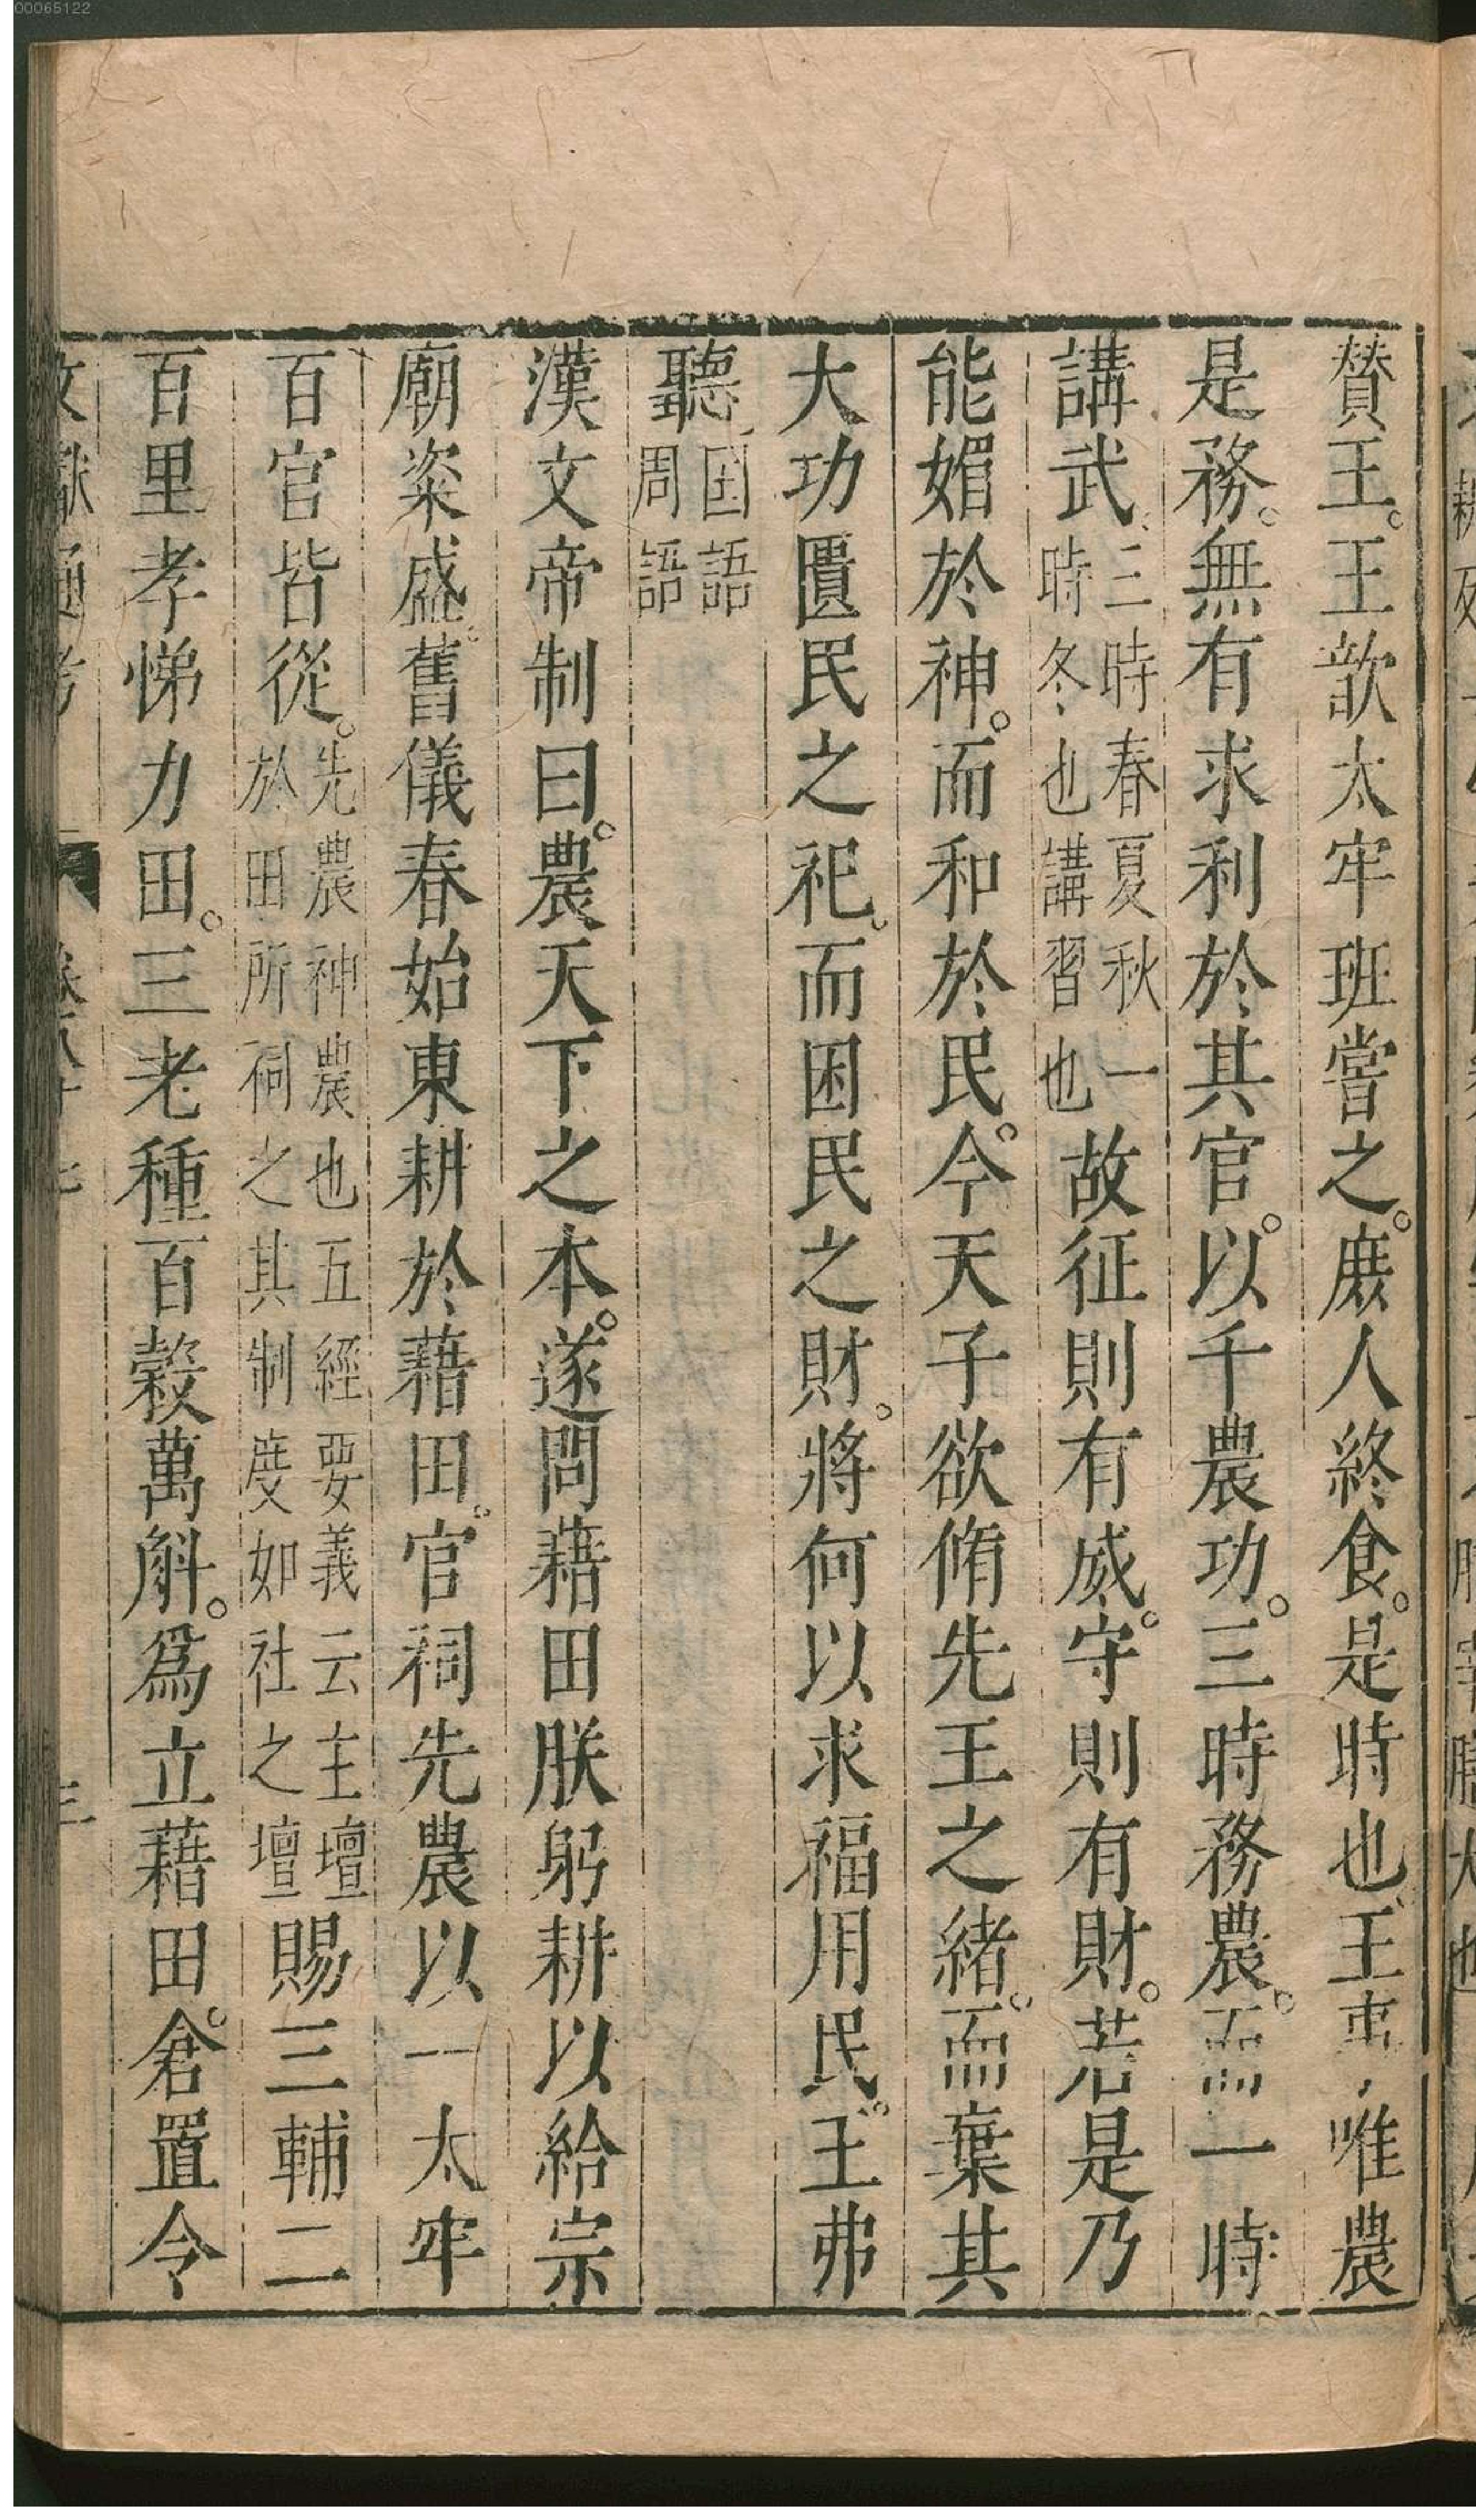 00065122
賛王。王歆太牢班嘗之。庶人終食。是時也王事唯農
是務。無有求利於其官。以千農功。三時務農。而一時
講武。三時春夏秋一時冬也講習也故征則有威。守則有財。若是乃
能媚於神。而和於民。今天子欲脩先王之緒。而棄其
大功匱民之祀。而困民之財。將何以求福用民。王弗
聽。国語周語
漢文帝制曰。農天下之本。遂問藉田朕躬耕以給宗
廟粢盛。舊儀春始東耕於藉田。官祠先農以一太牢
百官皆從。先農神農也五經要義云主壇於田所祠之其制度如社之壇賜三輔二
百里孝悌力田。三老種百穀萬斛。爲立藉田。倉置令
文獻通考 卷八十七 三